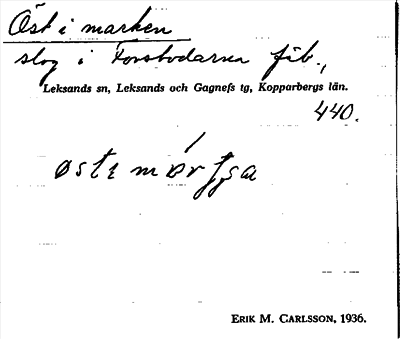 Öst i marken
slog i Tvrstbodarna fäb.,
Leksands sn, Leksands och Gagnefs tg, Kopparbergs län.
440.
ERIK M. CARLSSON, 1936.